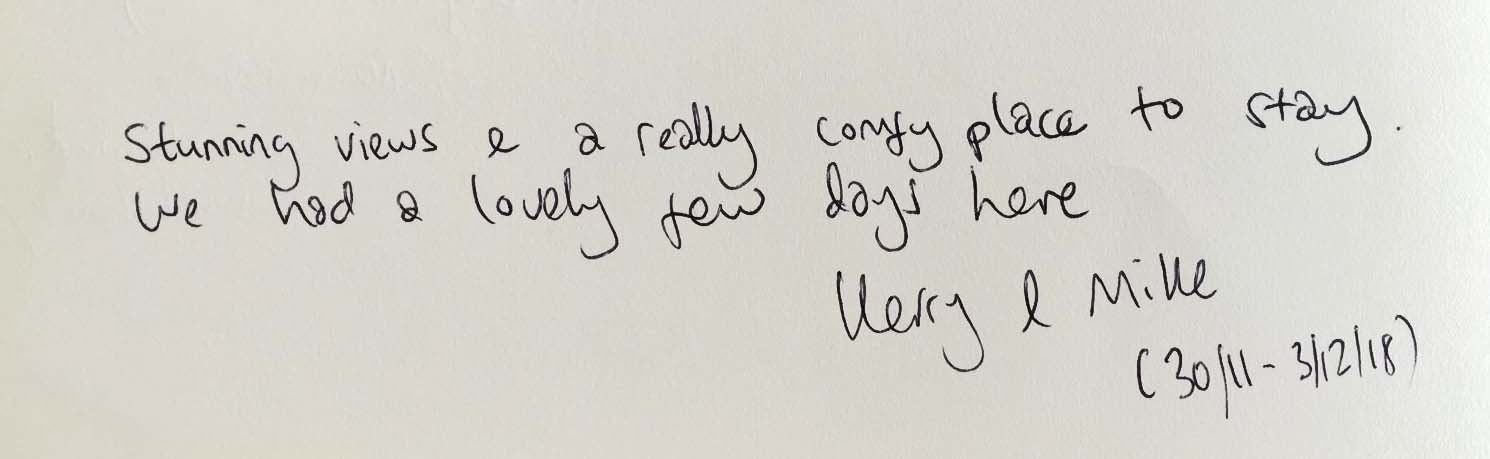 Stunning views & a really comfy place to stay.
We had a lovely few days here
Kerry & Mike
(30/11 - 3/12/18)